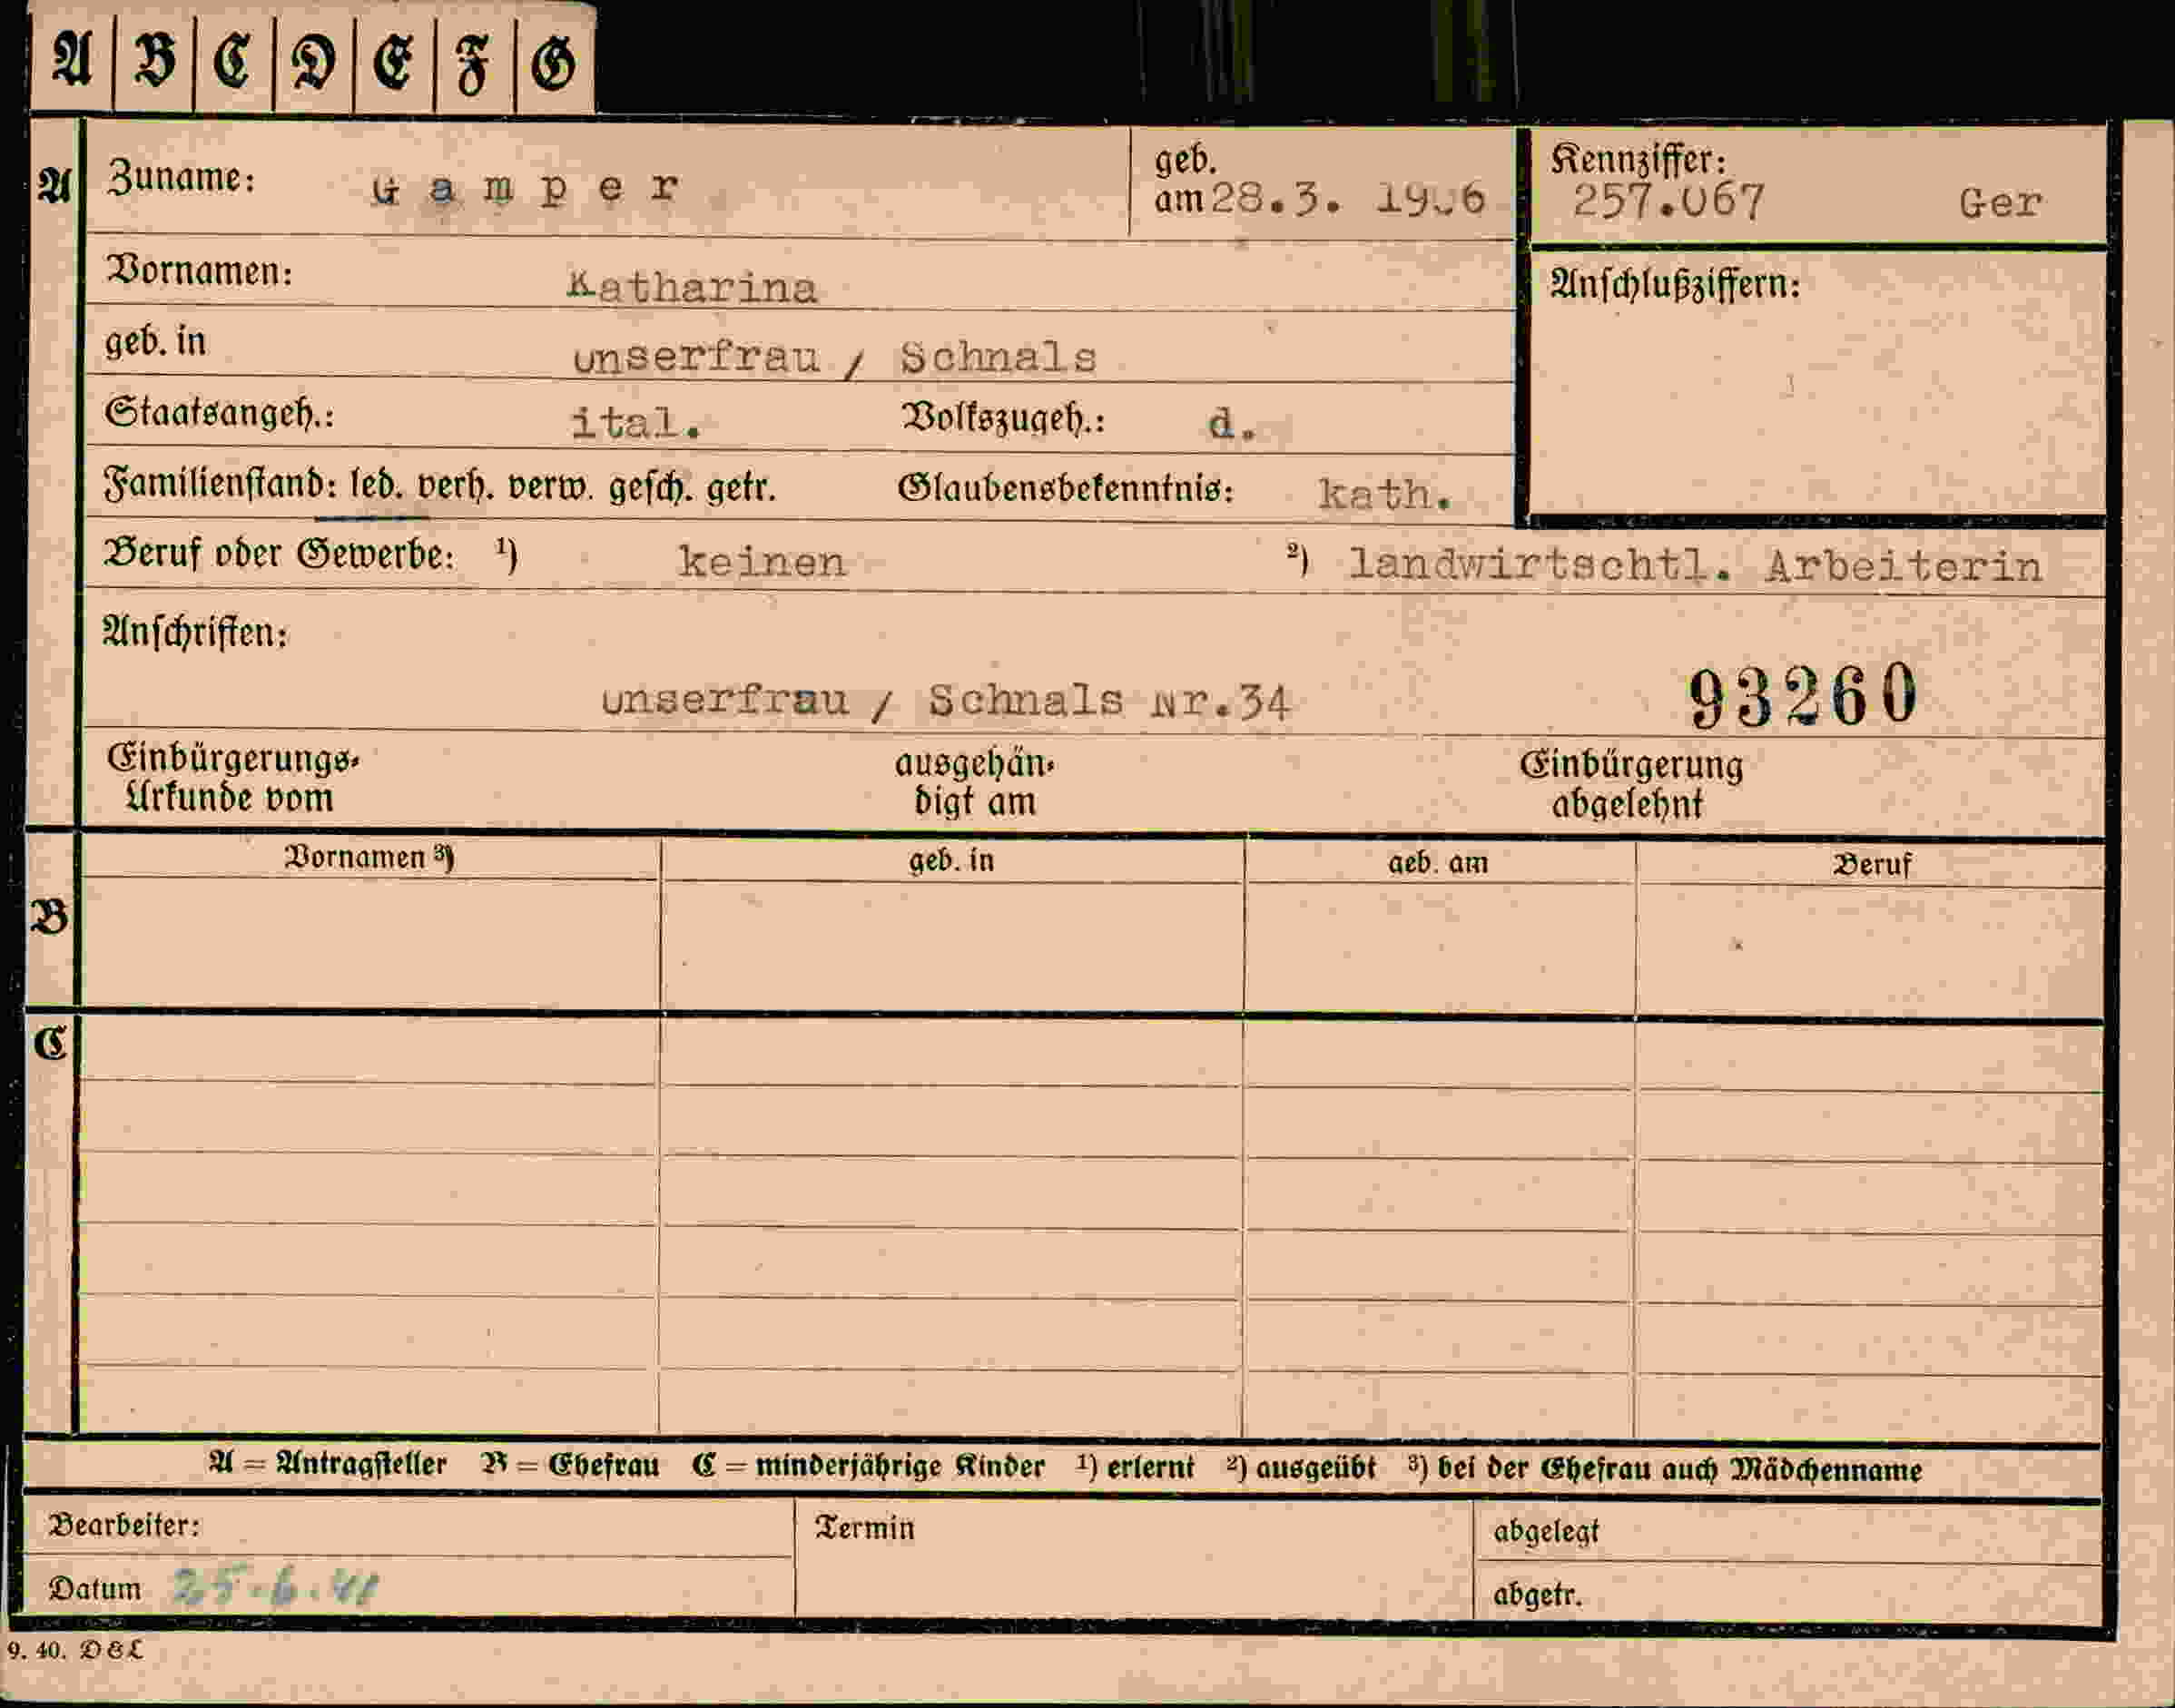 A B C D E F G
A Zuname: Gamper geb. am 28.3. 1906 Kennziffer: 257.067 Ger
Vornamen: Katharina Anschlußziffern:
geb. in Unserfrau / Schnals
Staatsangeh.: ital. Volkszugeh.: d.
Familienstand: led. verh. verw. gesch. getr. Glaubensbekenntnis: kath.
Beruf oder Gewerbe: ¹) keinen ²) landwirtschtl. Arbeiterin
Anschriften:
Unserfrau / Schnals Nr.34 93260
Einbürgerungs-Urkunde vom ausgehändigt am Einbürgerung abgelehnt
Vornamen ³) geb. in geb. am Beruf
B
C
A = Antragsteller B = Ehefrau C = minderjährige Kinder ¹) erlernt ²) ausgeübt ³) bei der Ehefrau auch Mädchenname
Bearbeiter: Termin abgelegt
Datum 25.6.41 abgetr.
9. 40. D&L